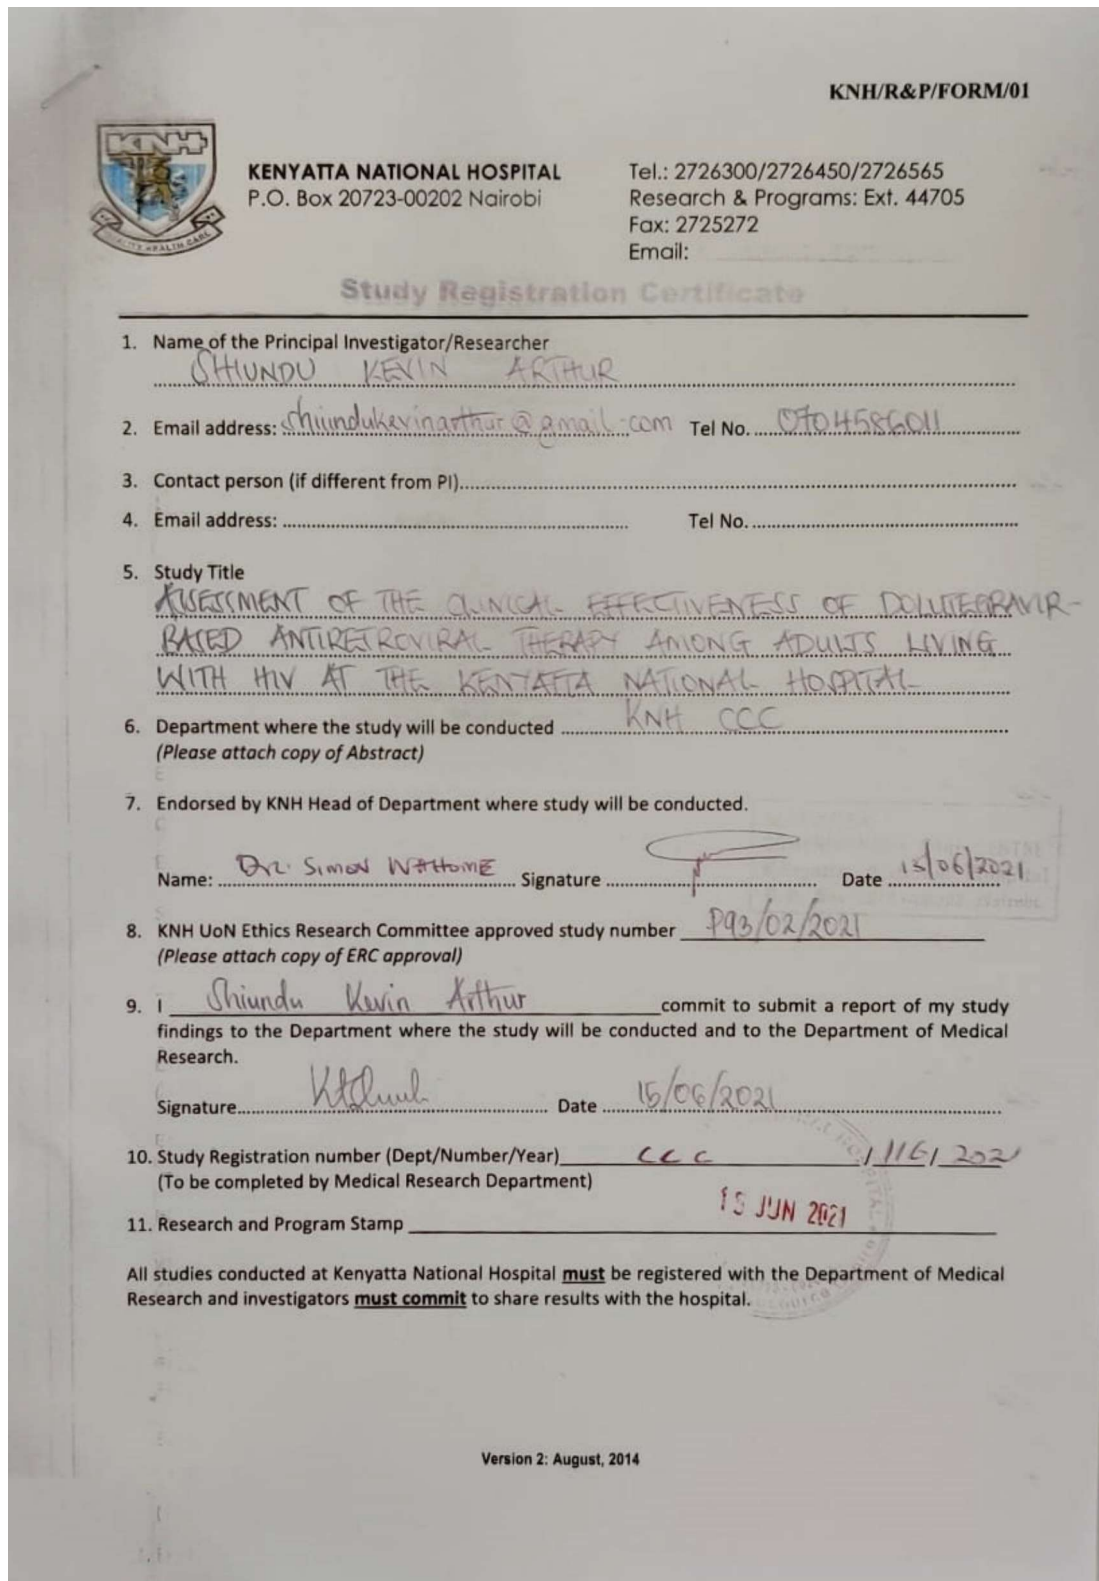 KNH/R&P/FORM/01
KNH
KENYATTA NATIONAL HOSPITAL
P.O. Box 20723-00202 Nairobi
Tel.: 2726300/2726450/2726565
Research & Programs: Ext. 44705
Fax: 2725272
Email:
HEALTH CARE
Study Registration Certificate
1. Name of the Principal Investigator/Researcher
SHIUNDU KEVIN ARTHUR
2. Email address: shiundukevinarthur@gmail.com Tel No. 0704586011
3. Contact person (if different from PI)
4. Email address: Tel No.
5. Study Title
ASSESSMENT OF THE CLINICAL EFFECTIVENESS OF DOLUTEGRAVIR-
BASED ANTIRETROVIRAL THERAPY AMONG ADULTS LIVING
WITH HIV AT THE KENYATTA NATIONAL HOSPITAL
6. Department where the study will be conducted KNH CCC
(Please attach copy of Abstract)
7. Endorsed by KNH Head of Department where study will be conducted.
Name: Dr. Simon WAHOME Signature Date 15/06/2021
8. KNH UoN Ethics Research Committee approved study number P93/02/2021
(Please attach copy of ERC approval)
9. I Shiundu Kevin Arthur commit to submit a report of my study
findings to the Department where the study will be conducted and to the Department of Medical
Research.
Signature Date 15/06/2021
10. Study Registration number (Dept/Number/Year) CCC / 116 / 2021
(To be completed by Medical Research Department)
11. Research and Program Stamp 15 JUN 2021
All studies conducted at Kenyatta National Hospital must be registered with the Department of Medical
Research and investigators must commit to share results with the hospital.
Version 2: August, 2014